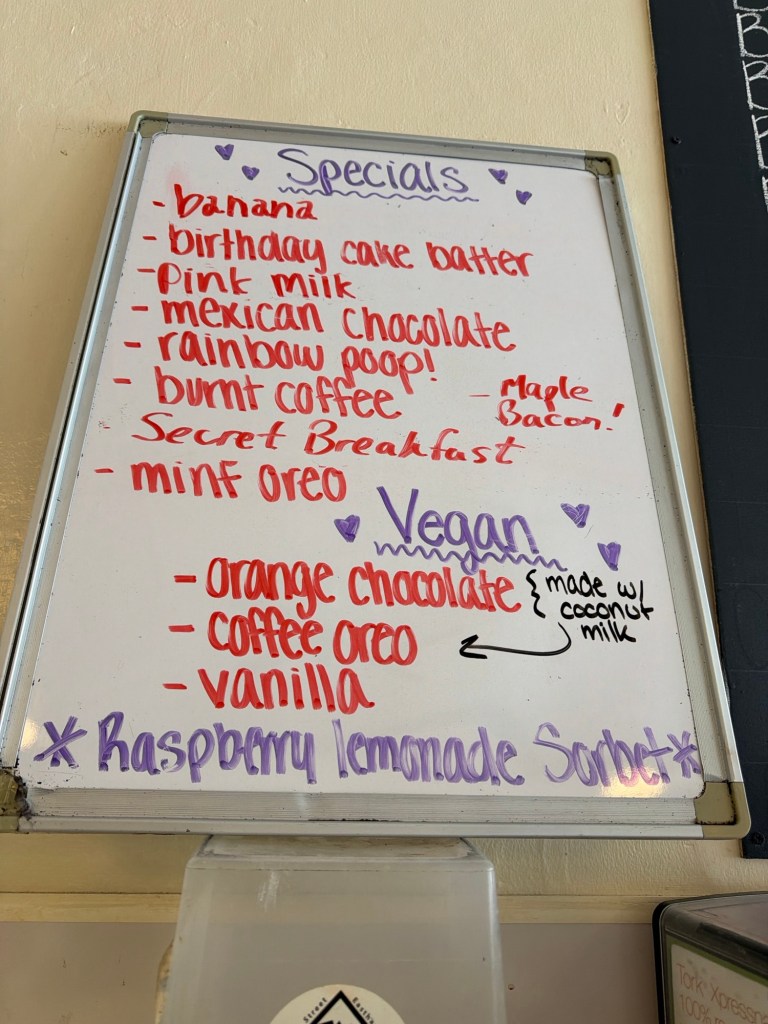 Specials
- banana
- birthday cake batter
- Pink milk
- mexican chocolate
- rainbow poop!
- burnt coffee
- Maple
Bacon!
Secret Breakfast
- mint oreo
Vegan
- orange chocolate { made w/
coconut
milk
- coffee oreo
- vanilla
* Raspberry lemonade Sorbet *
Street
Tork® Xpress
100%